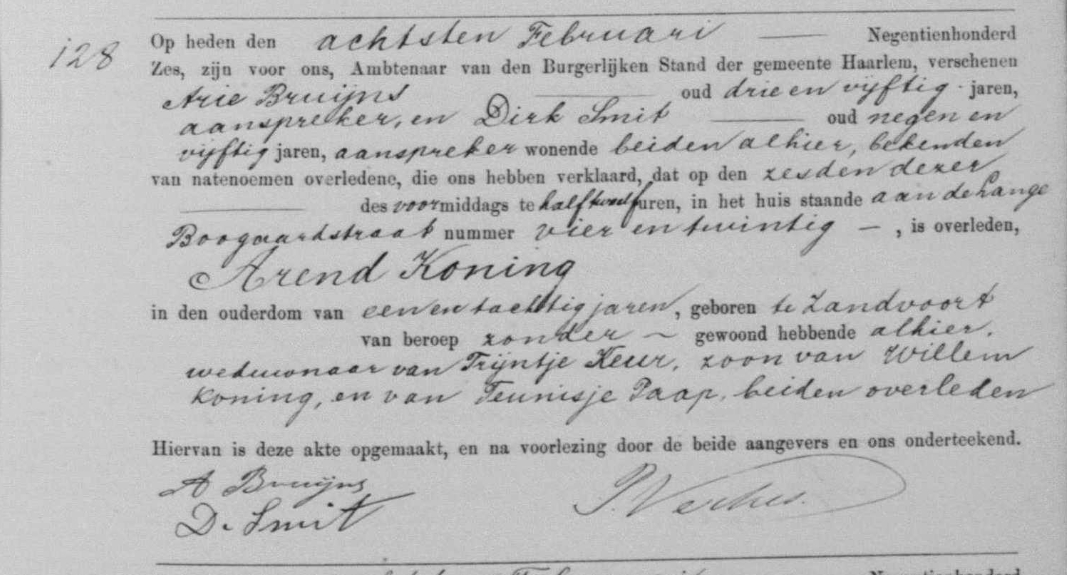 128 Op heden den achtsten Februari Negentienhonderd
Zes, zijn voor ons, Ambtenaar van den Burgerlijken Stand der gemeente Haarlem, verschenen
Arie Bruijns oud drie en vijftig jaren,
aanspreker, en Dirk Smit oud negen en
vijftig jaren, aanspreker wonende beiden alhier, bekenden
van natenoemen overledene, die ons hebben verklaard, dat op den zesden dezer
des voormiddags te half twaalf uren, in het huis staande aan de Lange
Boogaardstraat nummer vier en twintig —, is overleden,
Arend Koning
in den ouderdom van een en tachtig jaren, geboren te Zandvoort
van beroep zonder — gewoond hebbende alhier,
weduwnaar van Trijntje Keur, zoon van Willem
Koning, en van Teunisje Paap, beiden overleden
Hiervan is deze akte opgemaakt, en na voorlezing door de beide aangevers en ons onderteekend.
A Bruijns
D. Smit